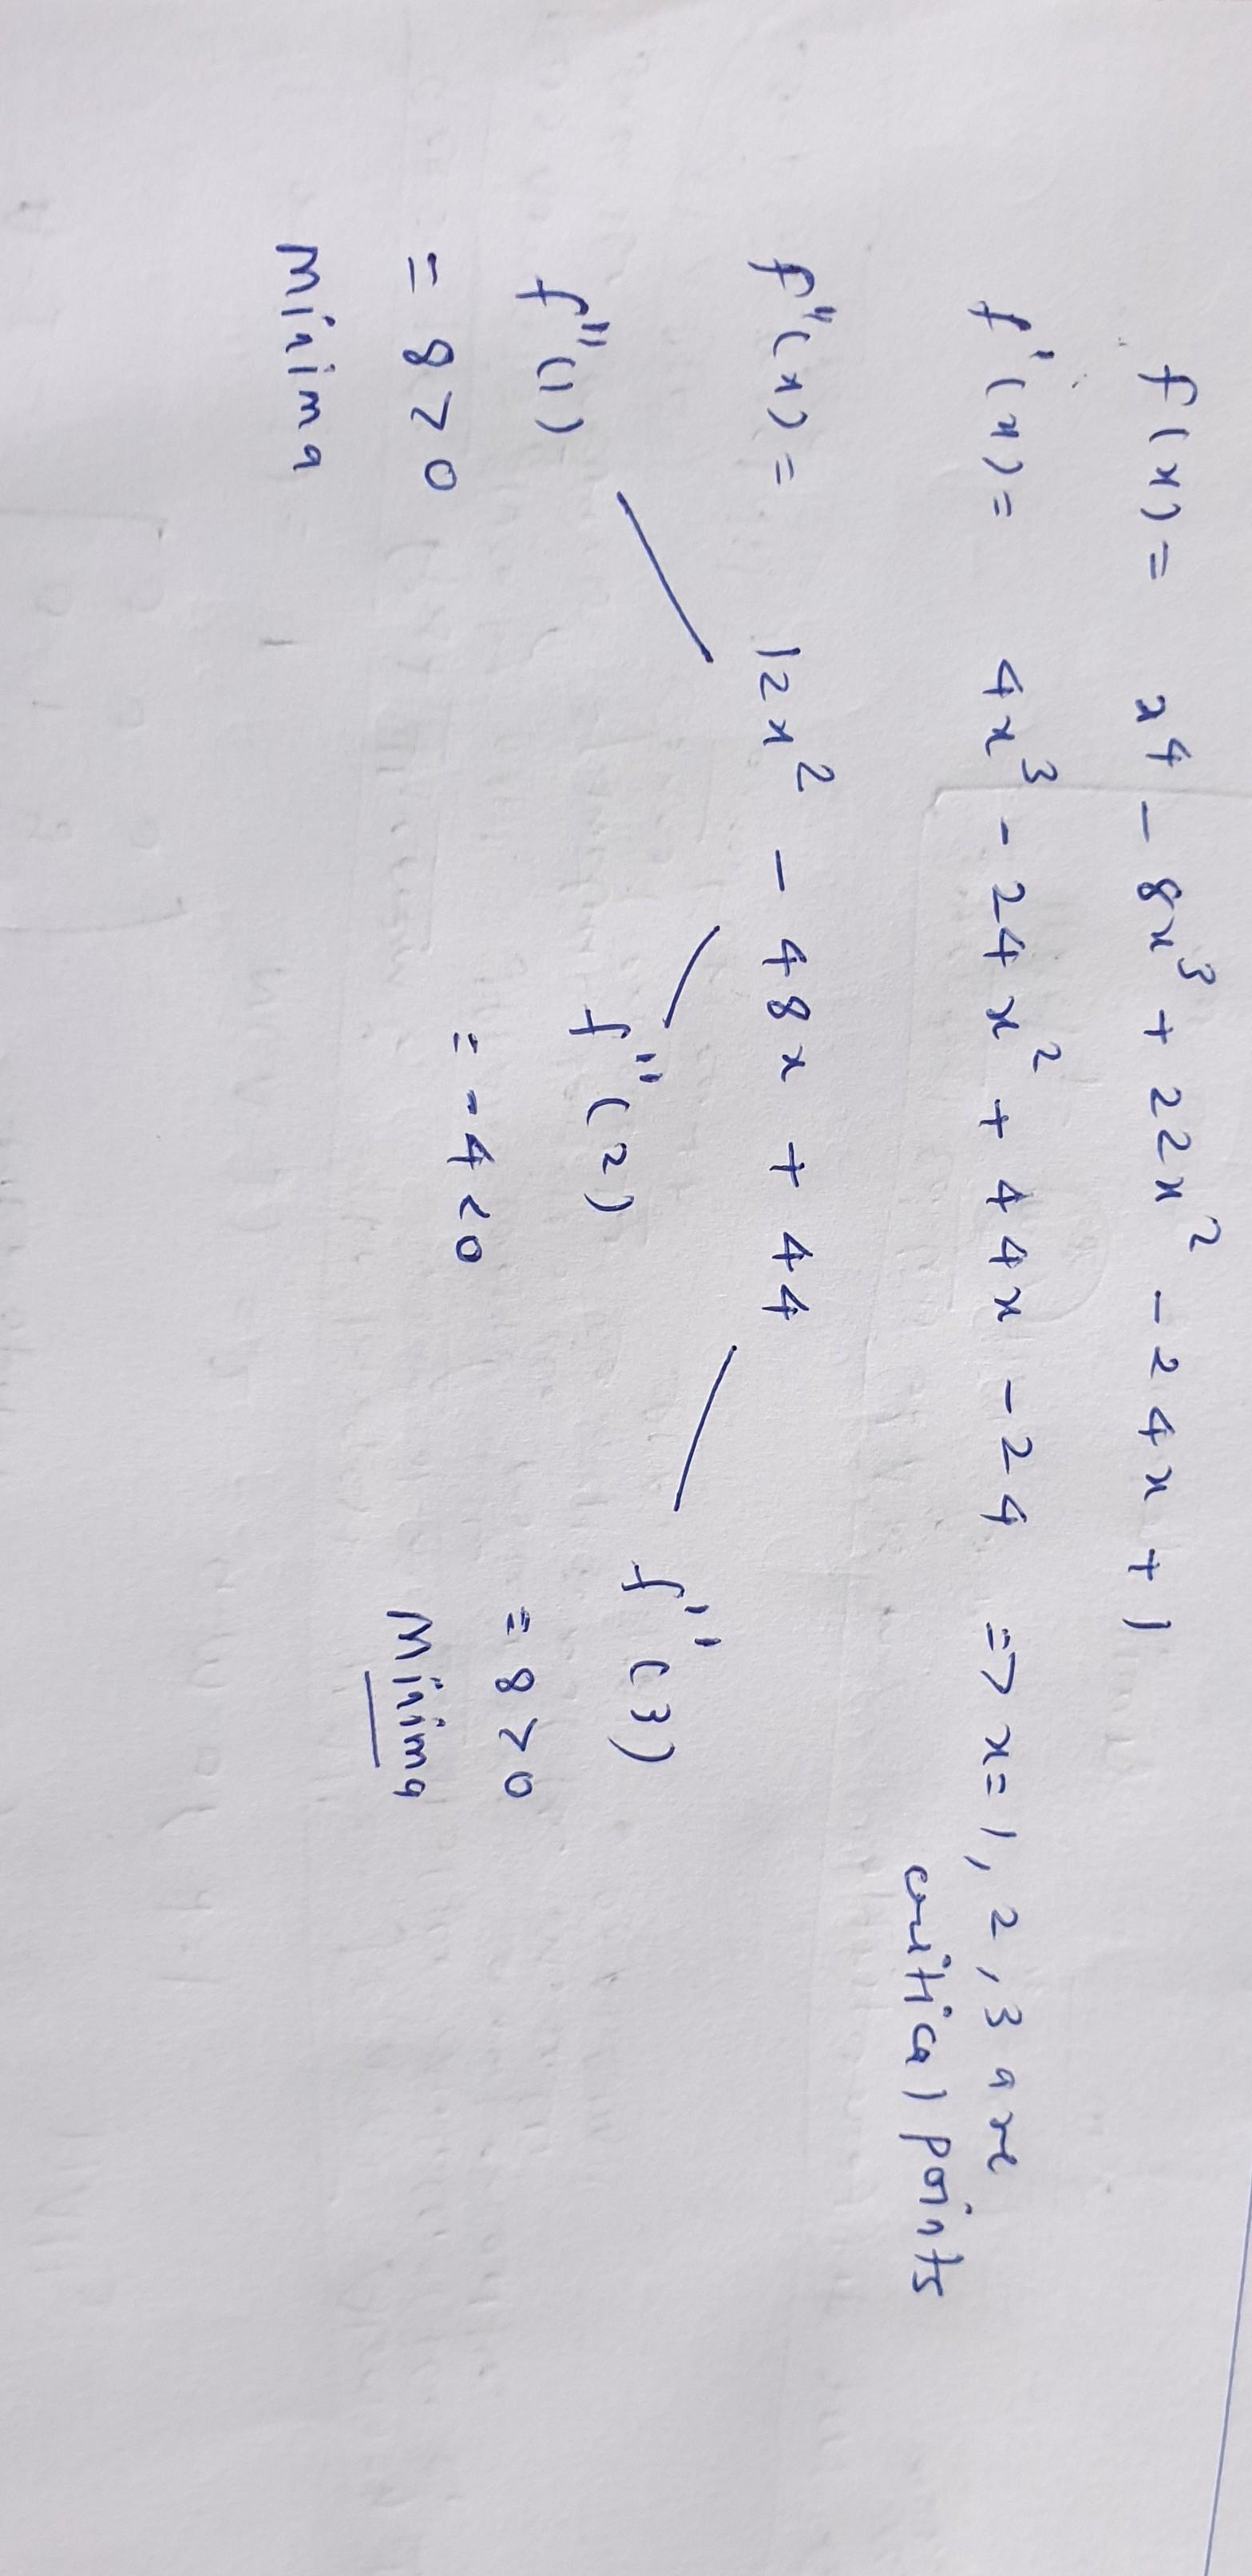 f(x) = x⁴ - 8x³ + 22x² - 24x + 1
f'(x) = 4x³ - 24x² + 44x - 24 => x = 1, 2, 3 are
critical points
f"(x) = 12x² - 48x + 44
f"(1) f"(2) f"(3)
= 8 > 0 = -4 < 0 = 8 > 0
Minima Minima